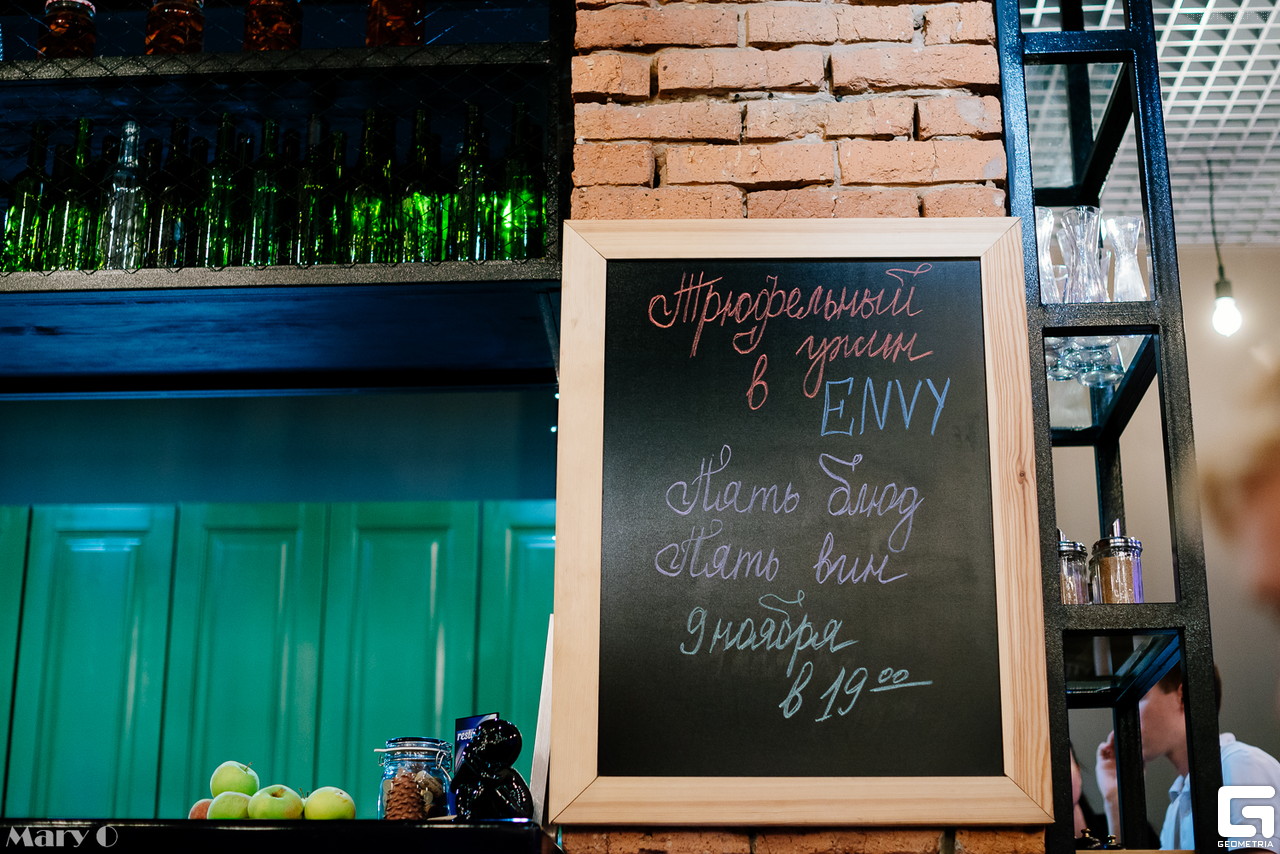 Трюфельный
ужин
в
ENVY
Пять блюд
Пять вин
9 ноября
в 19 00
Mary O
GEOMETRIA